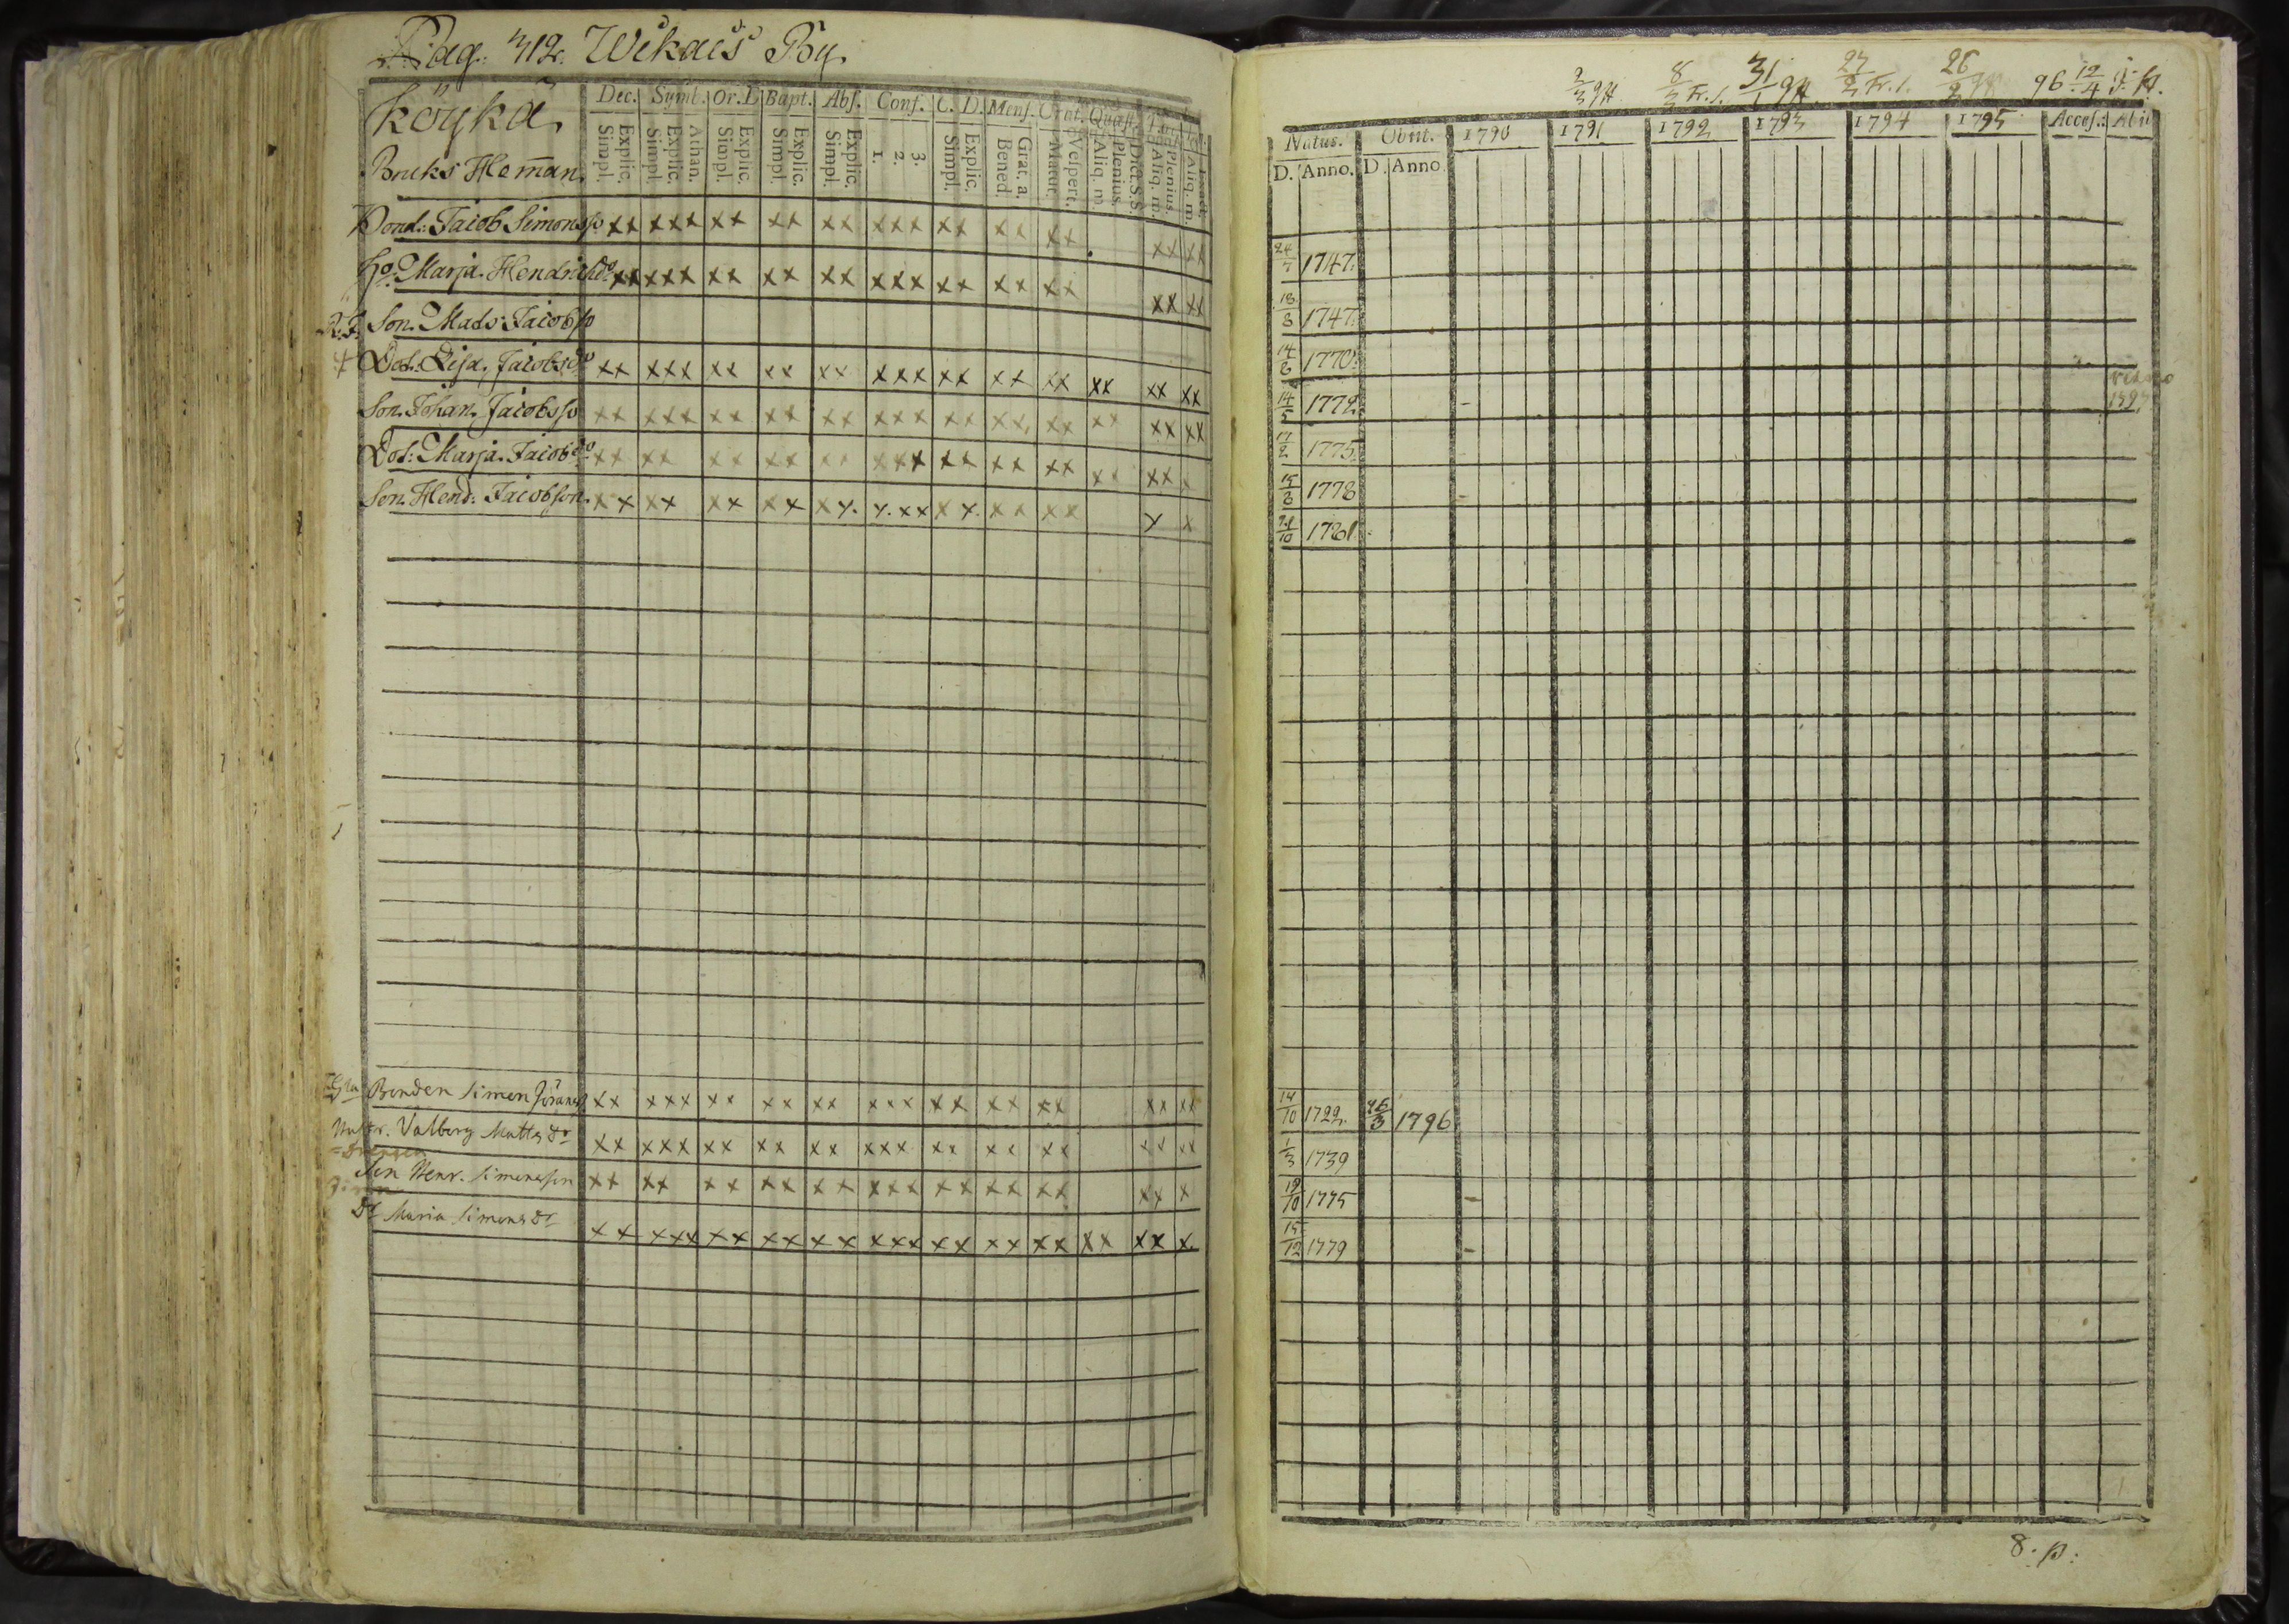 Pag. 312. Wikais By.
Köykä.
Bruks Heman.
Dec. Symb. Or. D Bapt. Abs. Conf. C. D. Mens. Orat. Quæst.
Simpl. Explic. Simpl. Explic. Athan. Simpl. Explic. Simpl. Explic. Simpl. Explic. 1. 2. 3. Simpl. Explic. Bened. Grat. a. Matut. Vespert. Aliq. m. Plenius. Dict. S.S. Aliq. m. Plenius. Aliq. m.
Bond.: Jacob Simonss xx xxx xx xx xx xxx xx xx xx xx xx
Ho. Marja. Hendrichsdo xx xxx xx xx xx xxx xx xx xx xx xx
Son. Mats Jacobss
+ Dot. Lisa. Jacobsdo xx xxx xx xx xx xxx xx xx xx xx xx xx
Son. Johan. Jacobsss xx xxx xx xx xx xxx xx xx xx xx xx xx
Dot: Marja. Jacobsdo xx xx xx xx xx xxx xx xx xx xx xx x
Son. Hend: Jacobsson. xx xx xx xx xx xxx xx xx xx x x
Bonden Simon Jöranss xx xxx xx xx xx xxx xx xx xx xx xx
Hustr. Valborg Matts dr xx xxx xx xx xx xxx xx xx xx xx xx
Son Henr. Simonsson xx xx xx xx xx xxx xx xx xx xx x
Dr Maria Simons dr xx xxx xx xx xx xxx xx xx xx xx xx x
2/3 8/3 Fr. 31/1 27/2 Fr. 26/2 96. 12/4
Natus. Obiit. 1790 1791 1792 1793 1794 1795 Acces.: Abit
D. Anno. D. Anno
24/7 1747.
18/3 1747.
14/2 1770.
14/5 1772. -
17/2 1775.
15/3 1778 -
21/10 1781
14/10 1722. 26/3 1796
1/3 1739
19/10 1775 -
15/12 1779 -
8. p: